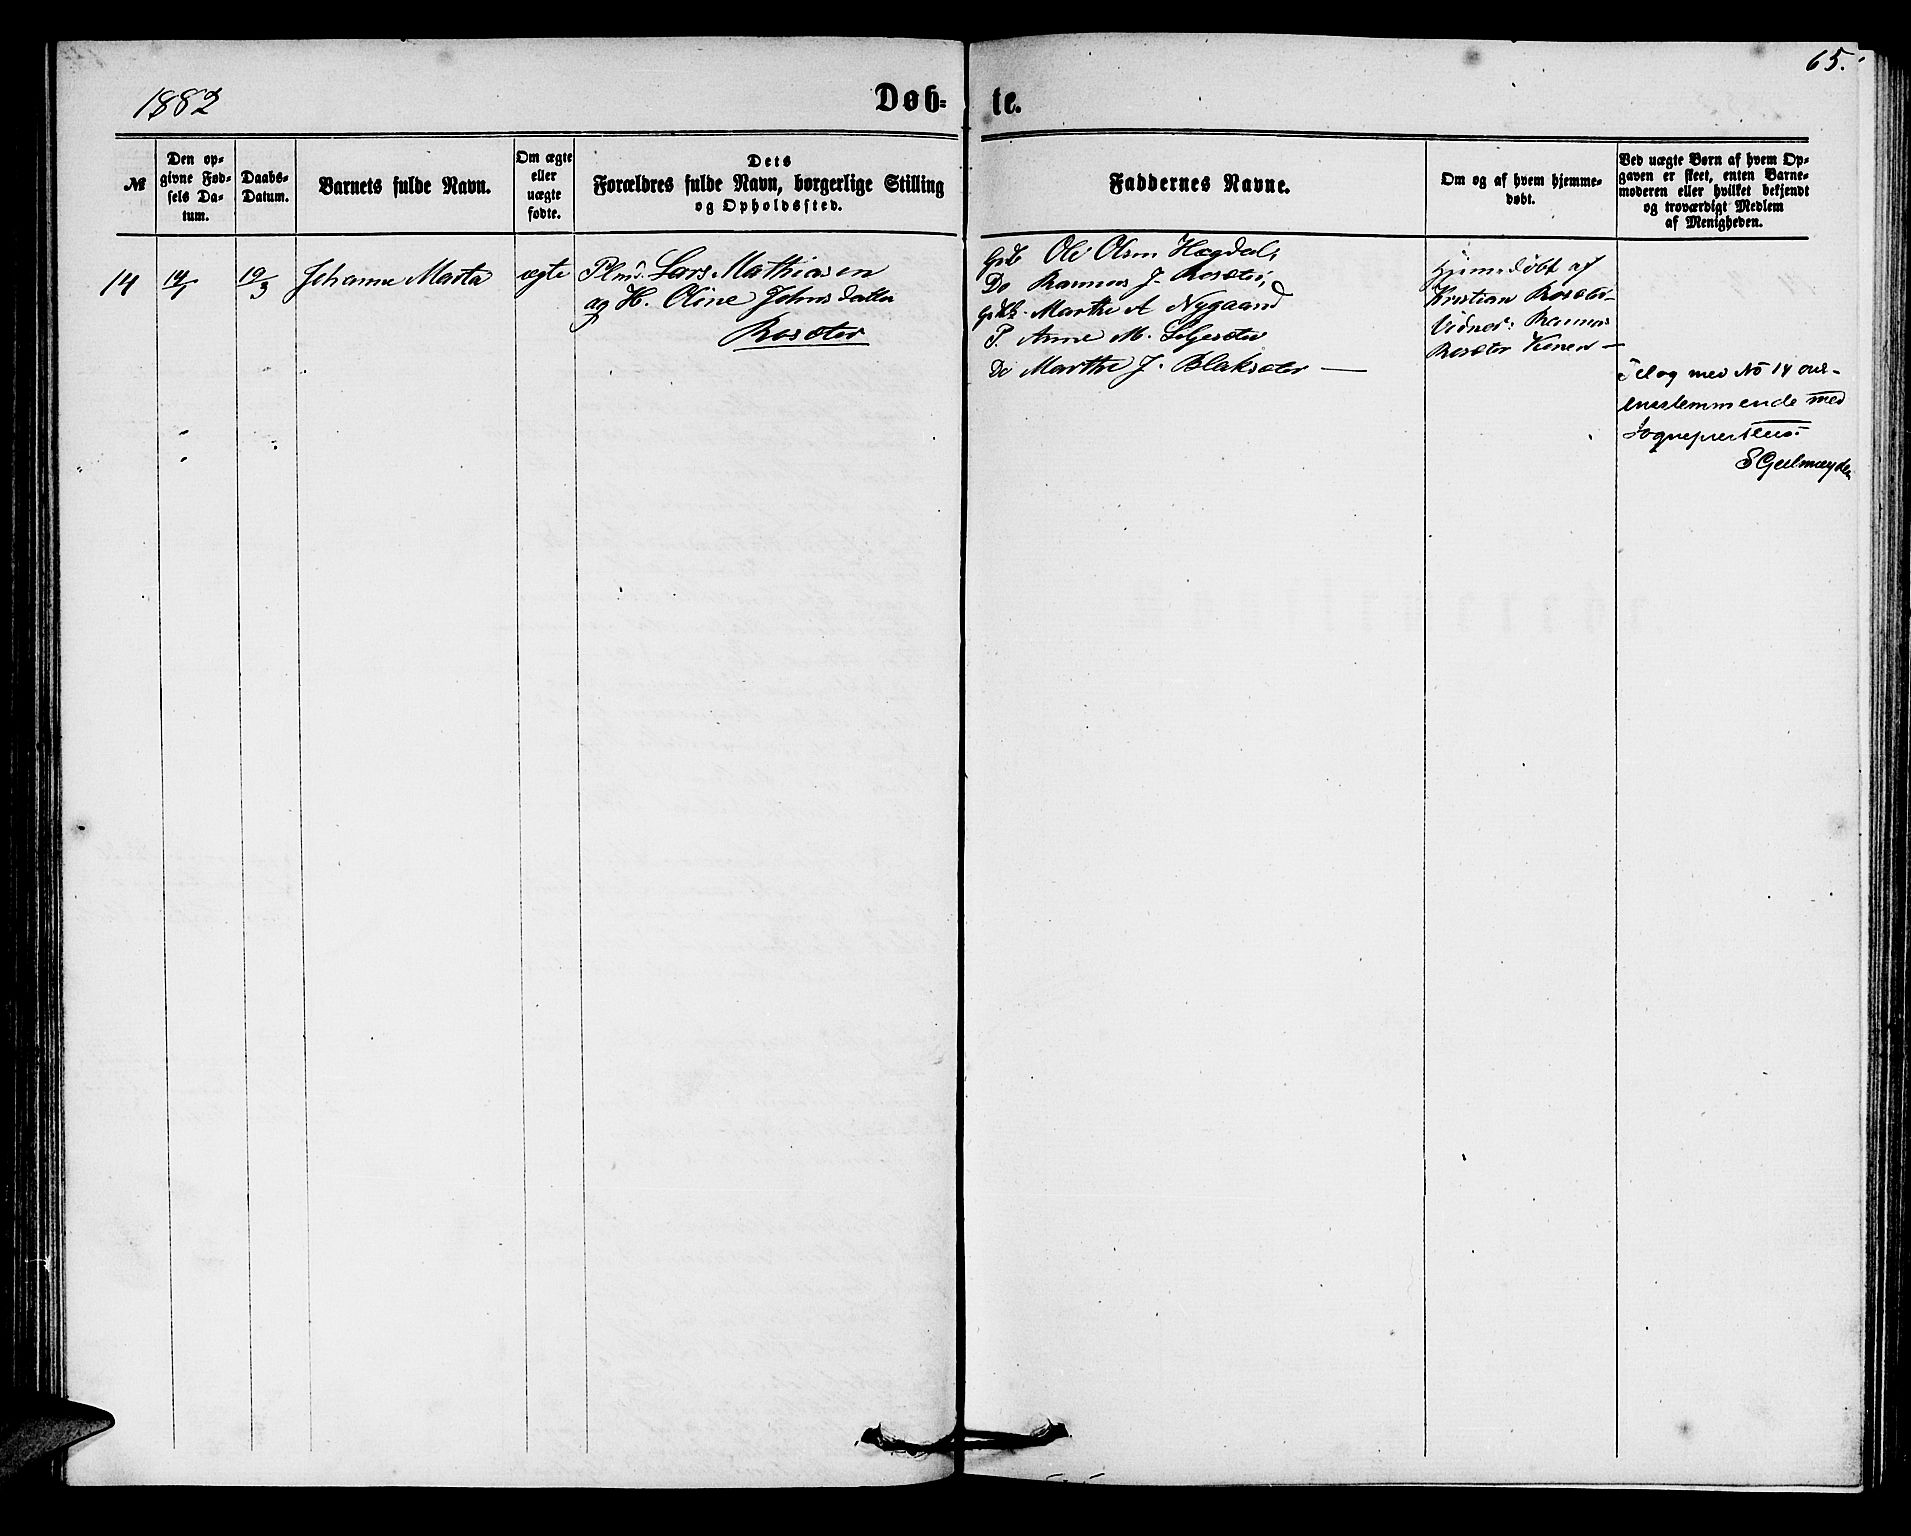 65.
1882
Døb-
te.
№
Den op-
givne Fød-
sels Da-
tum.
Daabs-
Datum.
Barnets fulde Navn.
Om ægte
eller
uægte
fødte.
Dets
Forældres fulde Navn, borgerlige Stilling
og Opholdssted.
Faddernes Navne.
Om og af hvem hjemme-
døbt.
Ved uægte Børn af hvem Op-
gaven er skeet, enten Barne-
moderen eller hvilket bekjendt
og troværdigt Medlem
af Menigheden.
14
14/1
19/3
Johanne Marta
ægte
Plmd. Lars Mathiasen
og H. Oline Johnsdatter
Rosæter
Grb Ole Olsen Hægdal,
Do Rasmus J. Rosæter,
Marthe A Nygaard
P. Anne M.
Do Marthe J. Blaksæter —
Hjemmedøbt af
Kristian Rosæter
Vidner: Rasmus
Rosæter Konen —
Til og med No 14 over-
ensstemmende med
Sognepræstens.
S Geelmuyden